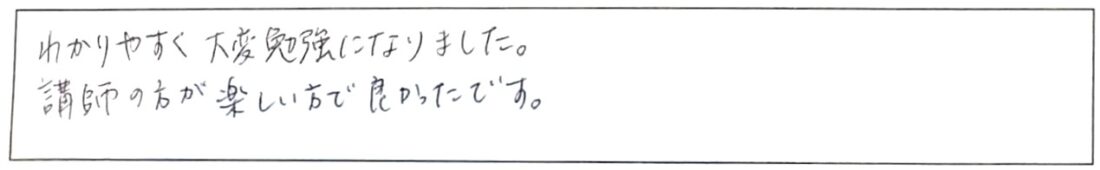 わかりやすく大変勉強になりました。
講師の方が楽しい方で良かったです。